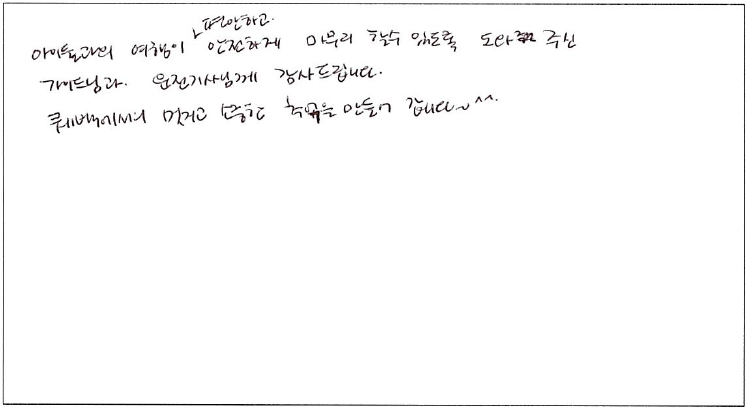 아이들과의 여행이 편안하고 안전하게 마무리 할수 있도록 도와 주신
가이드님과. 운전기사님께 감사드립니다.
퀘벡에서의 멋지고 소중한 추억을 만들어 갑니다~ ^^.